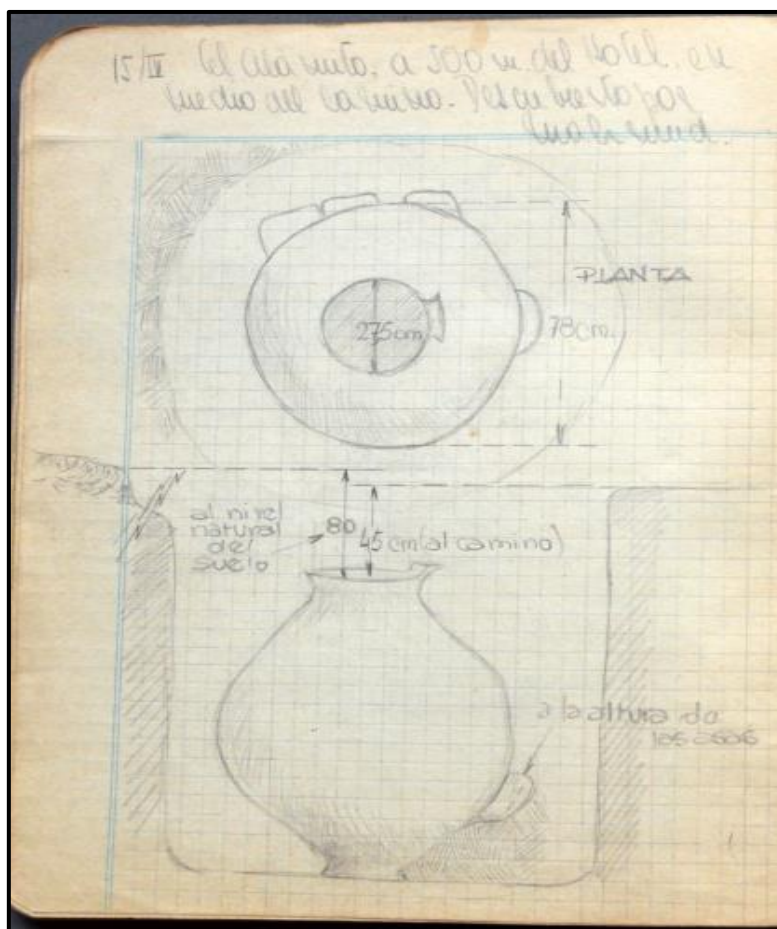 15/IV El Alamito. a 500 m. del Hotel, en
medio del camino. Descubierto por
PLANTA
27,5cm
78cm.
al nivel
natural
del
suelo
80
45 cm (al camino)
a la altura de
las asas